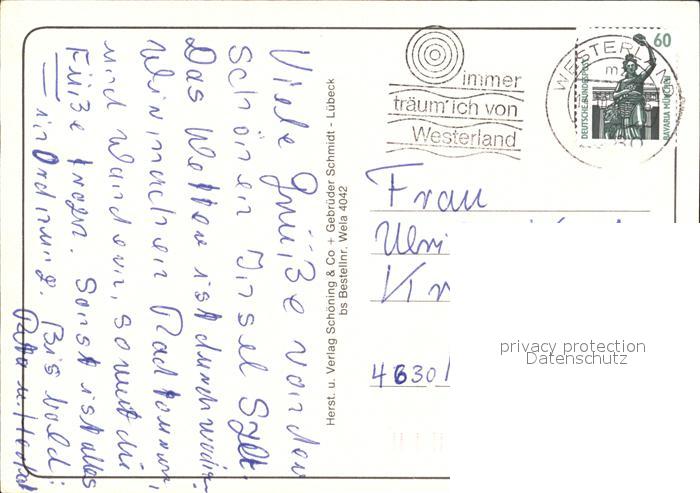 Viele Grüße von der
schönen Insel Sylt.
Das Wetter ist durchwachsen
Wir machen Radtouren,
und wandern, soweit die
Füße tragen. Sonst ist alles
in Ordnung. Bis bald!
u.
Herst. u. Verlag Schöning & Co + Gebrüder Schmidt - Lübeck
bs Bestellnr. Wela 4042
immer
träum' ich von
Westerland
WESTERL
60
DEUTSCHE BUNDESPOST
BAVARIA MÜNCHEN
Frau
Ulri
4630 1
privacy protection
Datenschutz